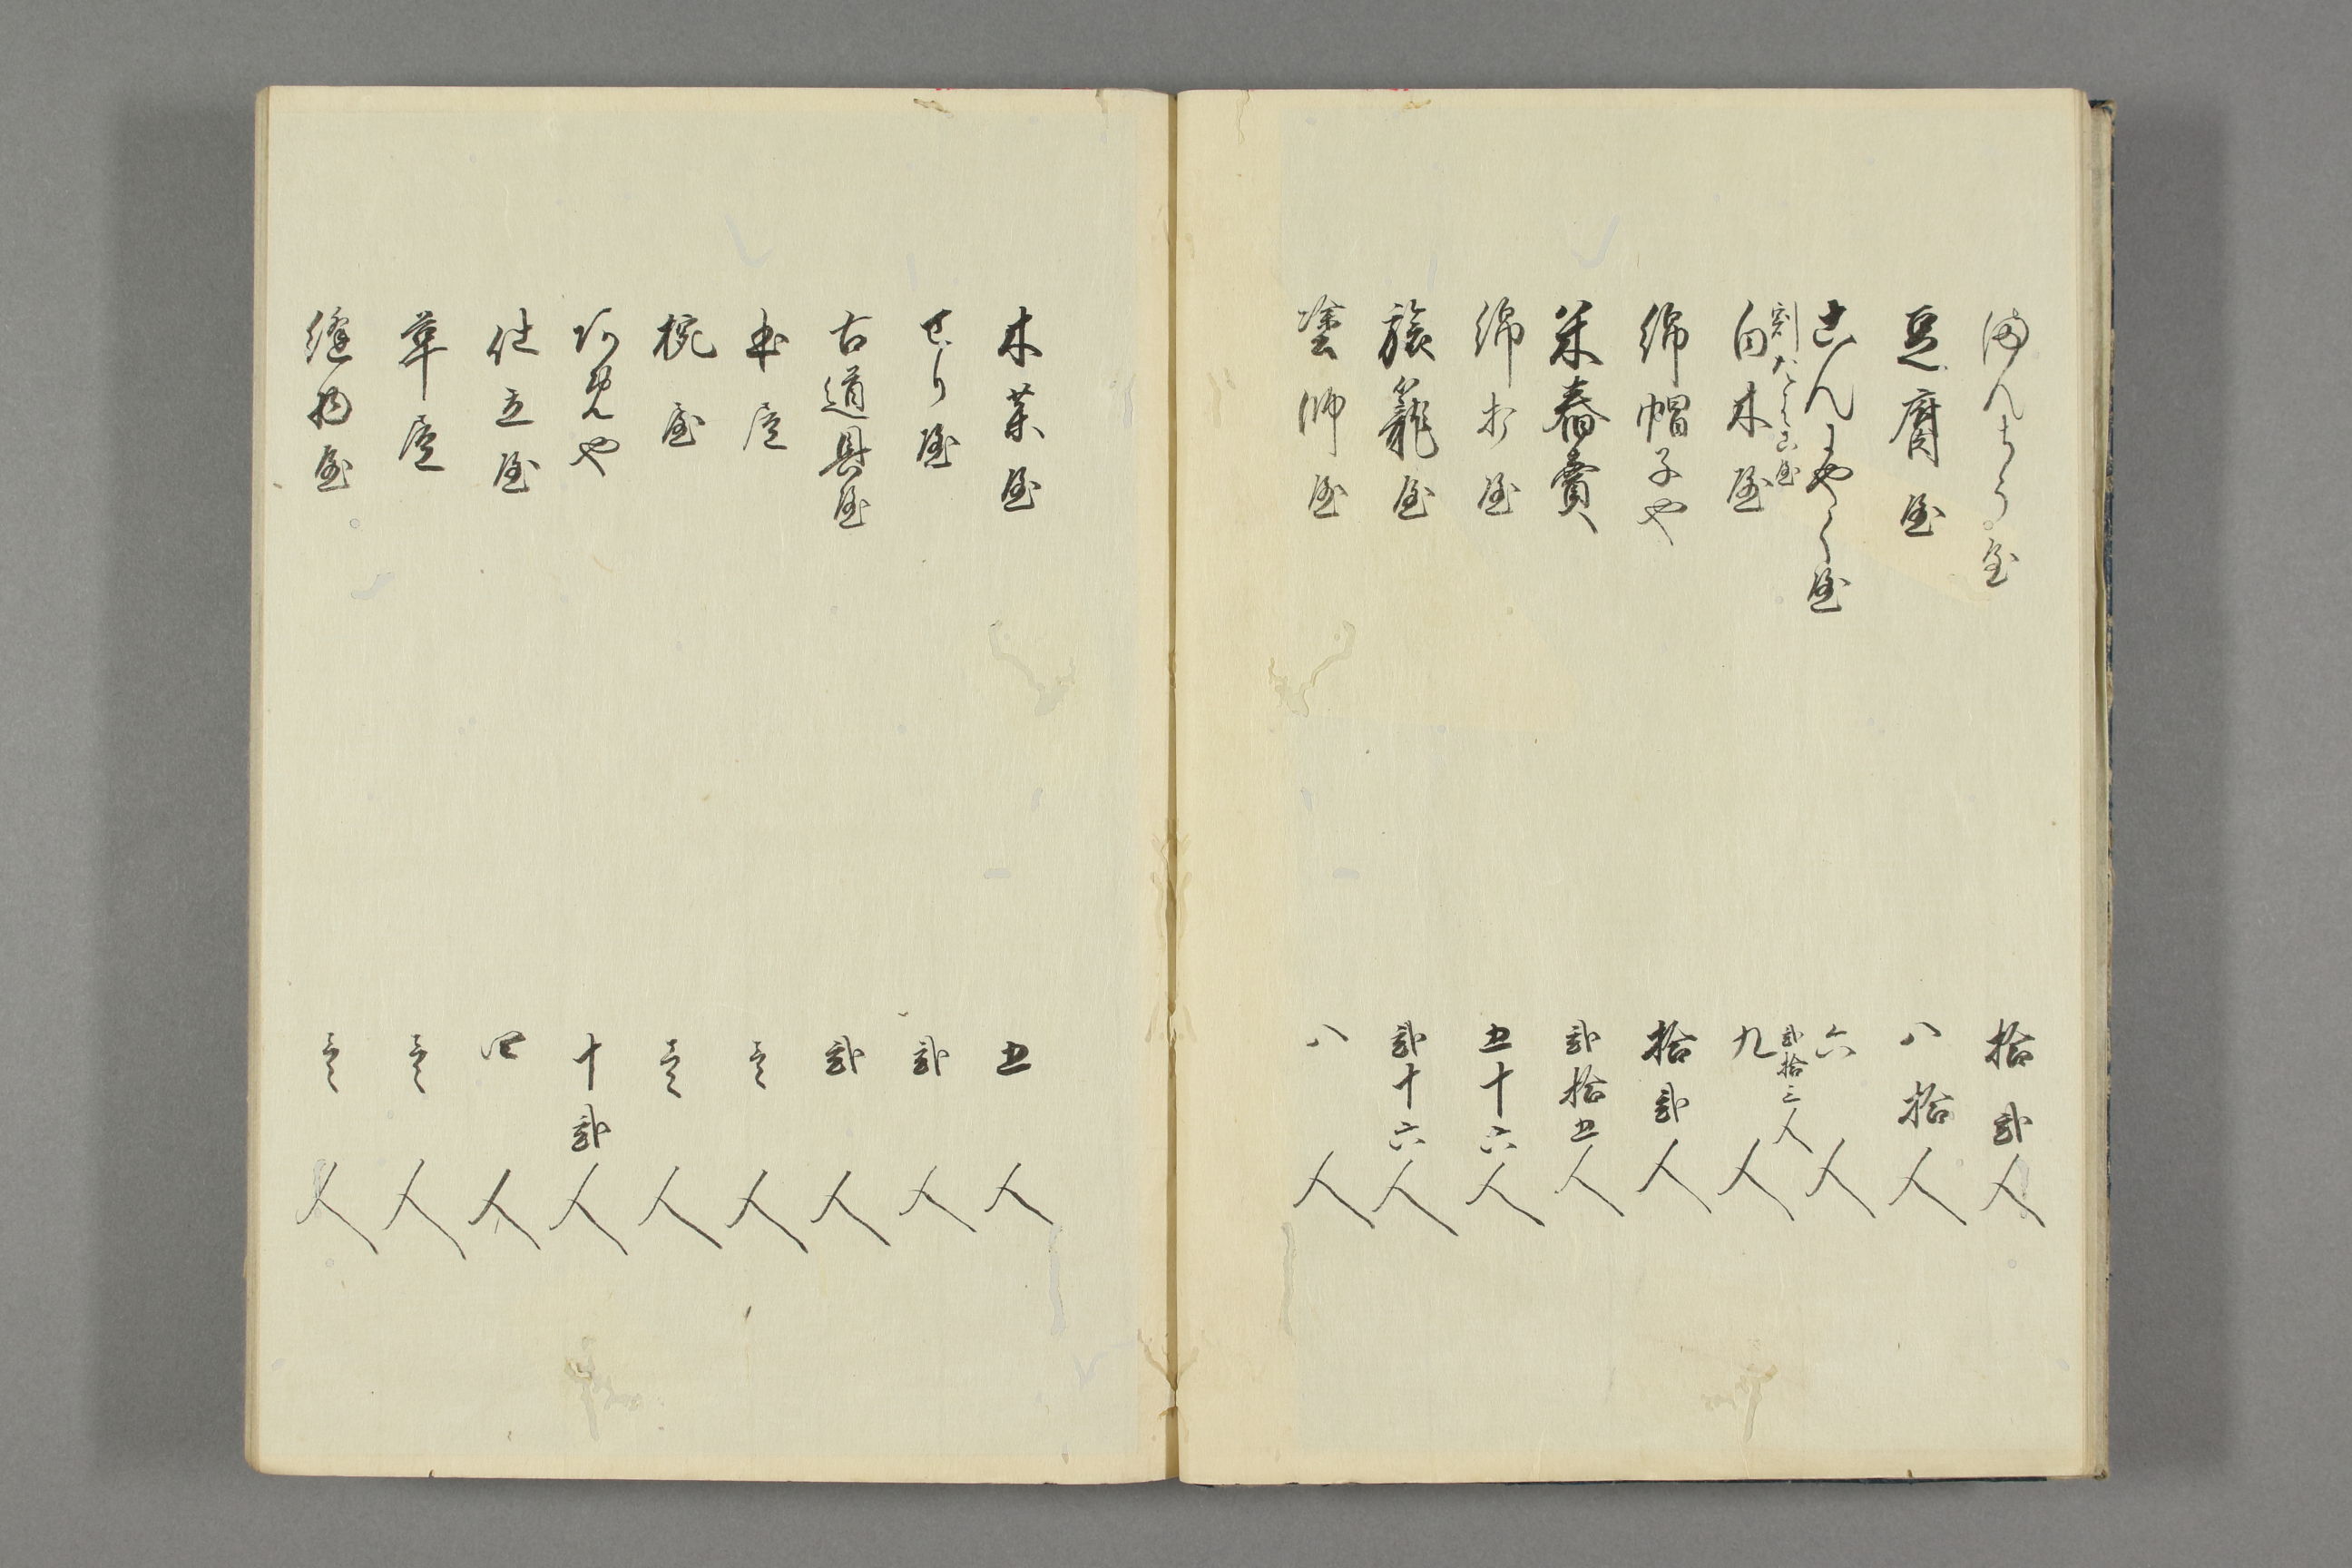 満んちう屋 拾弐人
豆腐屋 八拾人
こんにやく屋 六人
割たはこ屋 弐拾三人
白木屋 九人
綿帽子や 拾弐人
米舂賣 弐拾五人
綿打屋 五十六人
旅籠屋 弐十六人
塗師屋 八人
木薬屋 五人
せり屋 弐人
古道具屋 弐人
本屋 壱人
椀屋 壱人
めんや 十弐人
仕立屋 四人
革屋 壱人
縫物屋 壱人